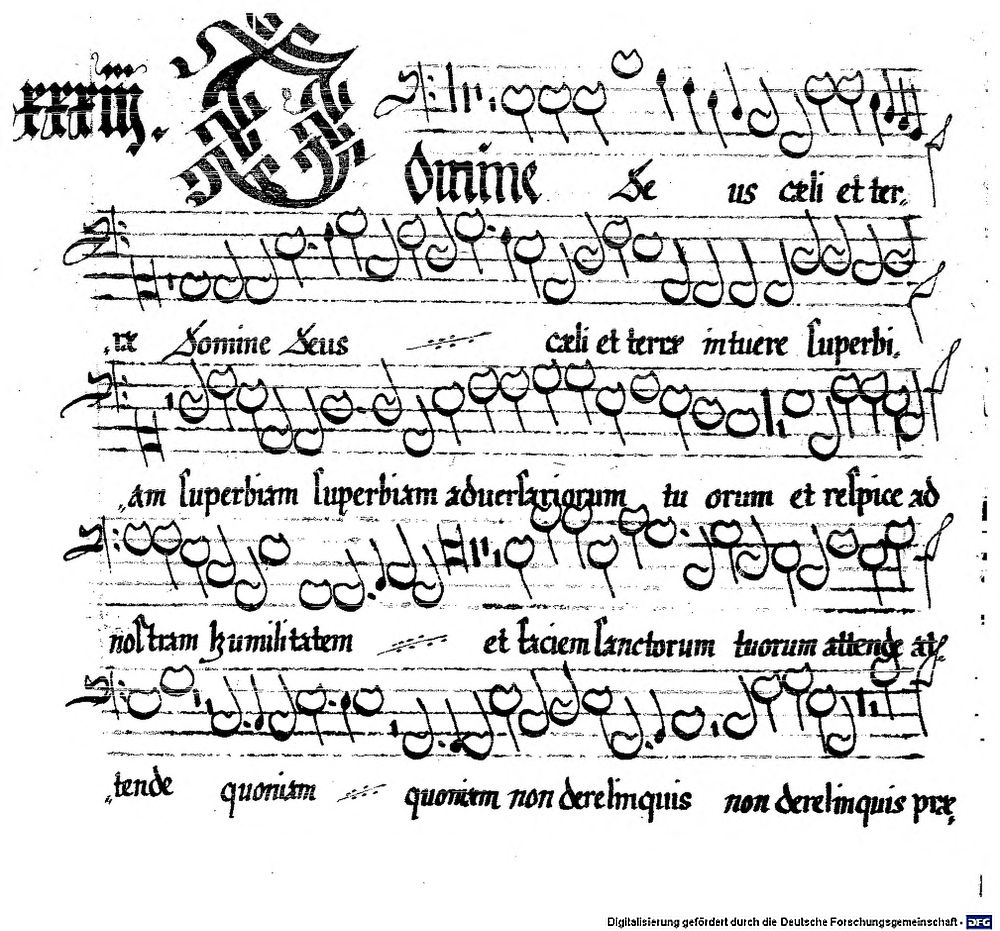 xxxiiij.
Domine De us cæli et ter,
,ræ Domine Deus cæli et terræ intuere superbi,
,am superbiam superbiam adversariorum tu orum et respice ad
nostram humilitatem et faciem sanctorum tuorum attende at,
,tende quoniam quoniam non derelinquis non derelinquis præ,
Digitalisierung gefördert durch die Deutsche Forschungsgemeinschaft - DFG